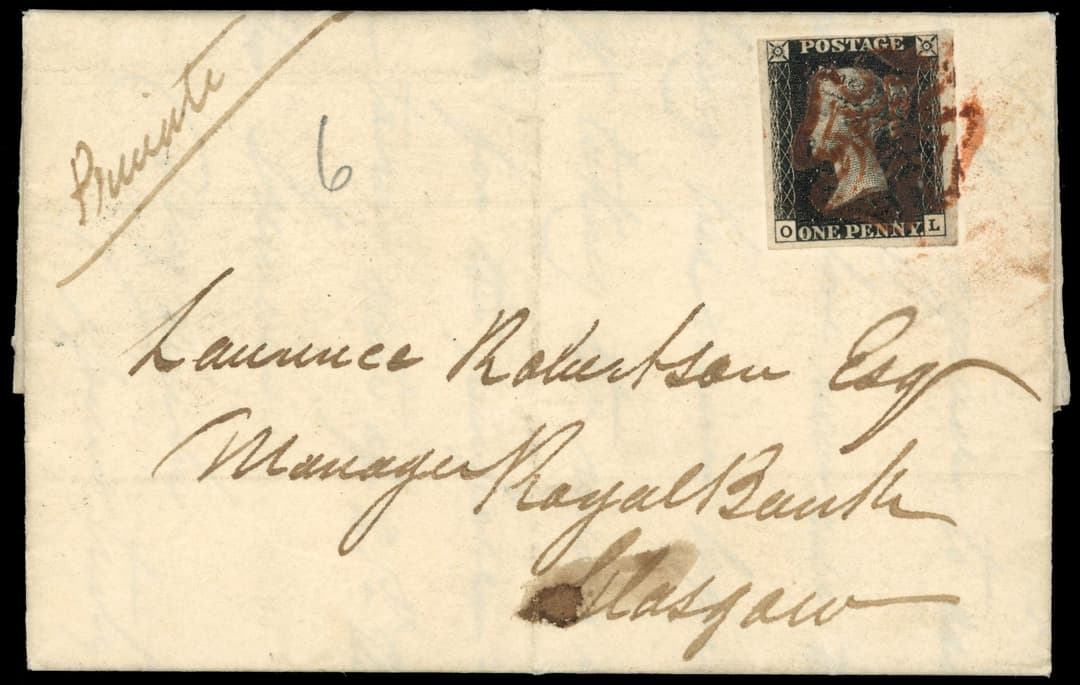 Private
6
POSTAGE
O ONE PENNY. L
Laurence Robertson Esqr
Manager Royal Bank
Glasgow